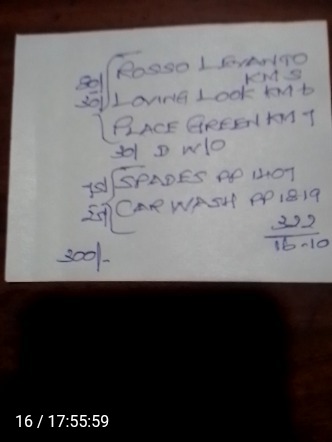 80/ ROSSO LEVANTO
KM 5
30/ LOVING LOOK KM 6
PLACE GREEN KM 7
30/ D W/O
75/ SPADES PP 1407
25/ CAR WASH PP 1819
322
16-10
300/-
16 / 17:55:59